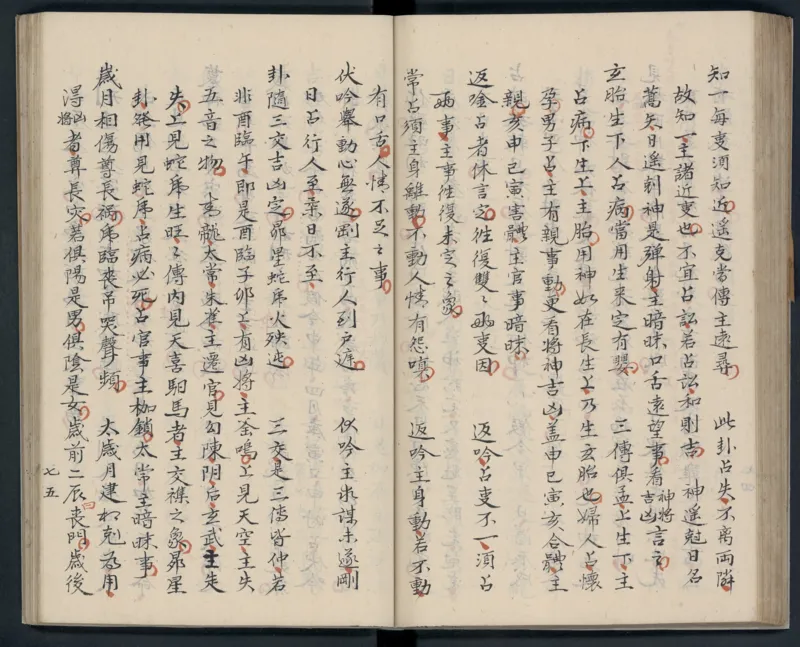 知一每吏須知近遥克常傳主遠尋　此卦占失不离両隣
故知一主諸近吏也不宜占訟若占訟和則吉　神遥尅日名
蒿矢日遥刻神是弾射主暗昧口舌遠望事看神将吉凶言之
玄胎生下人占病當用生来定有嬰　三傳俱孟上生下主
占病下生上主胎用神如在長生上乃生玄胎也婦人占懷
孕男子占主有親事動更看将神吉凶盖申巳寅亥合體主
親亥申巳寅害體主官事暗昧
返吟占者休言定徃復雙〻両吏因　返吟占吏不一須占
両事主事徃復未定之象
常占須主身雖動不動人情有怨嚷　返吟主身動若不動
有口舌人情不足之事
伏吟舉動心無遂剛主行人到戸遲　似吟主求謀未遂剛
日占行人至柔日不至
卦隨三交吉凶定昴星蛇虎火殃迍　三交是三傳皆仲若
非酉臨午即是酉臨子卯上有凶将主釜鳴上見天空主失
五音之物龍太常朱雀主遷官見勾陳陰后玄武主失
失上見蛇虎生旺〻傳内見天喜馹馬者主交襍之象昴星
卦発用見蛇虎占病必死占官事主枷鎖太常主暗昧事
歲月相傷尊長禍虎臨喪吊哭聲頻　太歲月建相剋為用
得凶将者尊長灾若俱陽是男俱陰是女歲前二辰喪門歲後
七五